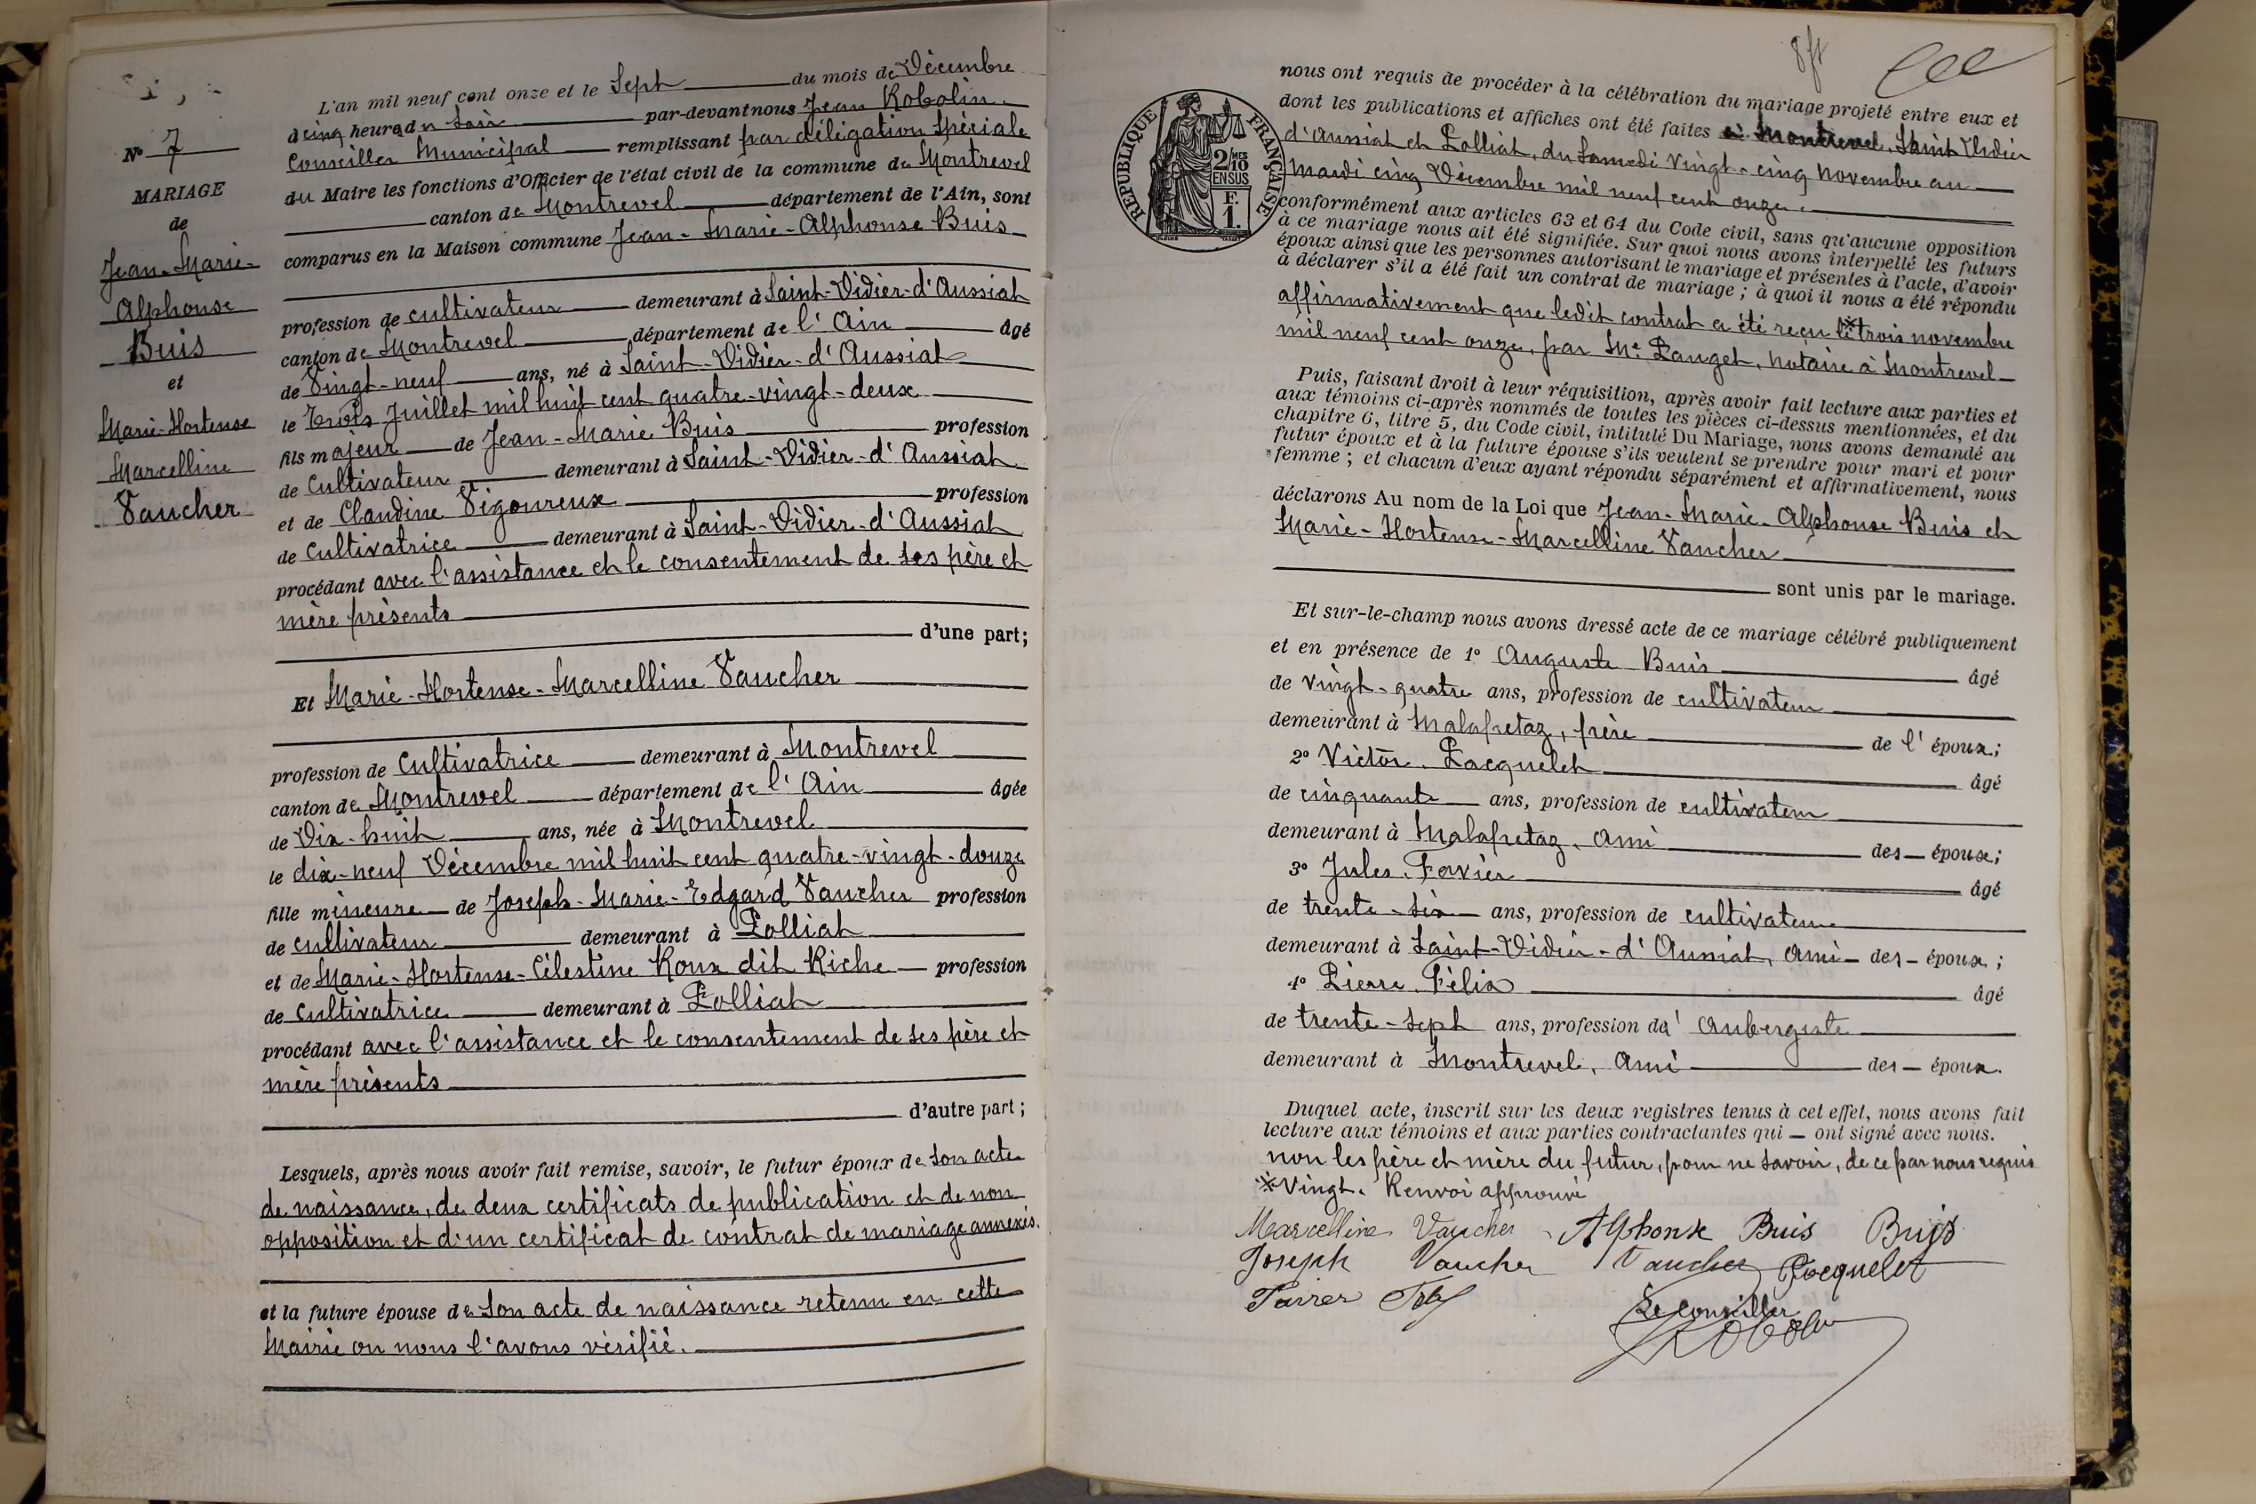 L'an mil neuf cent onze et le Sept du mois de Décembre
à cinq heures du soir par-devant nous Jean Robolin
Conseiller Municipal remplissant par délégation Spéciale
du Maire les fonctions d'Officier de l'état civil de la commune de Montrevel
canton de Montrevel département de l'Ain, sont
comparus en la Maison commune Jean-Marie-Alphonse Buis
profession de cultivateur demeurant à Saint-Didier-d'Aussiat
canton de Montrevel département de l'Ain âgé
de Vingt-neuf ans, né à Saint-Didier-d'Aussiat
le Trois Juillet mil huit cent quatre-vingt-deux
fils majeur de Jean-Marie Buis profession
de Cultivateur demeurant à Saint-Didier-d'Aussiat
et de Claudine Vigoureux profession
de Cultivatrice demeurant à Saint-Didier-d'Aussiat
procédant avec l'assistance et le consentement de ses père et
mère présents
d'une part;
Et Marie-Hortense-Marcelline Vaucher
profession de Cultivatrice demeurant à Montrevel
canton de Montrevel département de l'Ain âgée
de Dix-huit ans, née à Montrevel
le dix-neuf Décembre mil huit cent quatre-vingt-douze
fille mineure de Joseph-Marie-Edgard Vaucher profession
de cultivateur demeurant à Polliat
et de Marie-Hortense-Célestine Roux dit Riche profession
de Cultivatrice demeurant à Polliat
procédant avec l'assistance et le consentement de ses père et
mère présents
d'autre part;
Lesquels, après nous avoir fait remise, savoir, le futur époux de son acte
de naissance, de deux certificats de publication et de non
opposition et d'un certificat de contrat de mariage annexés.
et la future épouse de Son acte de naissance retenu en cette
Mairie ou nous l'avons vérifié.
No 7
MARIAGE
de
Jean-Marie-
Alphonse
Buis
et
Marie-Hortense
Marcelline
Vaucher
nous ont requis de procéder à la célébration du mariage projeté entre eux et
dont les publications et affiches ont été faites à Montrevel, Saint Didier
d'Aussiat et Polliat, du Samedi Vingt-cinq Novembre au
Mardi cinq Décembre mil neuf cent onze.
conformément aux articles 63 et 64 du Code civil, sans qu'aucune opposition
à ce mariage nous ait été signifiée. Sur quoi nous avons interpellé les futurs
époux ainsi que les personnes autorisant le mariage et présentes à l'acte, d'avoir
à déclarer s'il a été fait un contrat de mariage; à quoi il nous a été répondu
affirmativement que ledit contrat a été reçu le ※ trois novembre
mil neuf cent onze, par Me Pauget, Notaire à Montrevel
Puis, faisant droit à leur réquisition, après avoir fait lecture aux parties et
aux témoins ci-après nommés de toutes les pièces ci-dessus mentionnées, et du
chapitre 6, titre 5, du Code civil, intitulé Du Mariage, nous avons demandé au
futur époux et à la future épouse s'ils veulent se prendre pour mari et pour
femme; et chacun d'eux ayant répondu séparément et affirmativement, nous
déclarons Au nom de la Loi que Jean-Marie-Alphonse Buis et
Marie-Hortense-Marcelline Vaucher
sont unis par le mariage.
Et sur-le-champ nous avons dressé acte de ce mariage célébré publiquement
et en présence de 1o Auguste Buis âgé
de Vingt-quatre ans, profession de cultivateur
demeurant à Malafretaz, frère de l'époux;
2o Victor Pacquelet âgé
de cinquante ans, profession de cultivateur
demeurant à Malafretaz, Ami des époux;
3o Jules Favier âgé
de trente-six ans, profession de cultivateur
demeurant à Saint-Didier-d'Aussiat, Ami des époux;
4o Pierre Félix âgé
de trente-sept ans, profession d' Aubergiste
demeurant à Montrevel, Ami des époux.
Duquel acte, inscrit sur les deux registres tenus à cet effet, nous avons fait
lecture aux témoins et aux parties contractantes qui ont signé avec nous.
non les père et mère du futur, pour ne savoir, de ce par nous requis
※ Vingt. Renvoi approuvé
Marcelline Vaucher Alphonse Buis Buis
Joseph Vaucher Vaucher Pacquelet
Le Conseiller
Robolin
RÉPUBLIQUE FRANÇAISE
2/10 MES
EN SUS
F.
1.